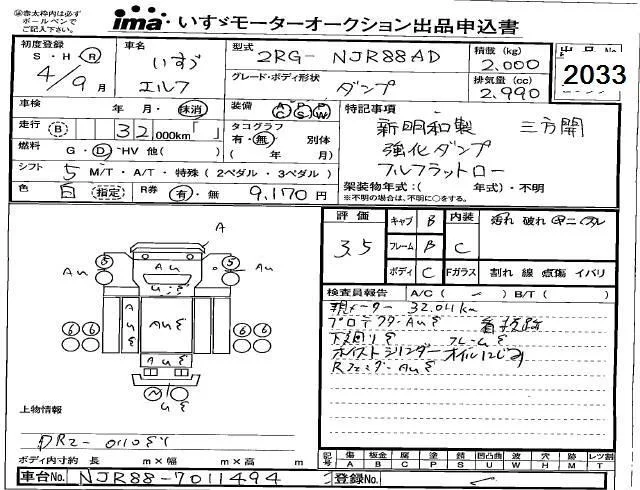 ㊟赤太枠内は必ず
ボールペンで
ご記入下さい。
ima いすゞモーターオークション出品申込書
初度登録
S・H・R
4/9月
車名
いすゞ
エルフ
型式
2RG- NJR88AD
グレード・ボディ形状
ダンプ
積載 (kg)
2.000
排気量 (cc)
2.990
2033
車検 年 月・抹消
装備 AC PS PW
走行 B 32000km「 」
タコグラフ
有・無 別体
( 年 月)
燃料 G・D・HV 他( )
シフト 5 M/T・A/T・特殊 (2ペダル・3ペダル)
色 白 (指定) R券 有・無 9,170円
特記事項
新明和製 三方開
強化ダンプ
フルフラットロー
架装物年式:( 年式)・不明
※不明の場合は、不明に○をする。
評価 3.5
キャブ B
フレーム B
ボディ C
内装 C
Fガラス
汚れ 破れ
割れ 線 点傷 イバリ
検査員報告 A/C( ) B/T( )
現メーター 32.041km
プロテクタ-AUE
下回りE フレームE
ホイストシリンダーオイルにじみ
RフェンダーAUE
A
AU
5 5
AU
AUE
6 6 6 6
AUE
上物情報
DR2-0110
ボディ内寸約 長 m×幅 m×高 m
記号 傷 板金 腐 塗 錆 凹凸曲 波 穴 跡 レンズ割
A B C P S U W H M T
車台No. NJR88-7011494
登録No.